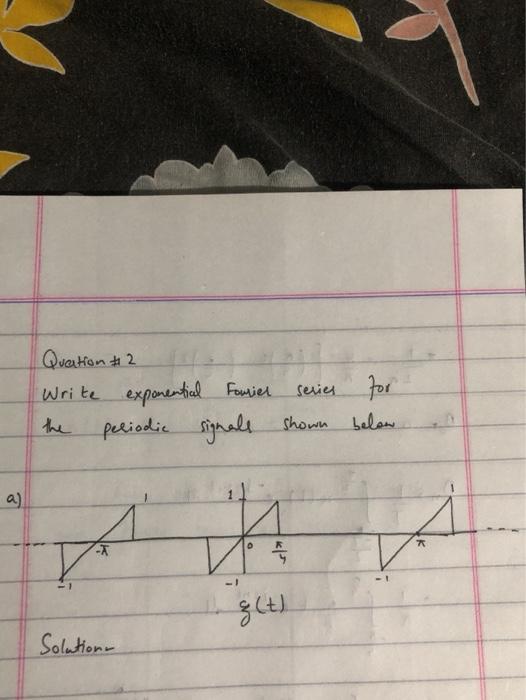 Question # 2
Write exponential Fourier series for
the periodic signals shown below
a)
1 1 1
-π 0 π/4 π
-1 -1 -1
g(t)
Solution-